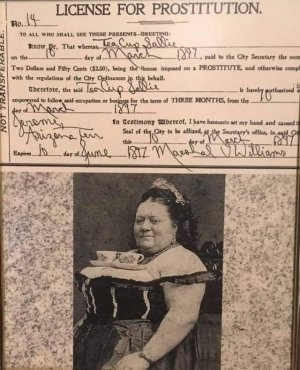 LICENSE FOR PROSTITUTION.
No. 14
TO ALL WHO SHALL SEE THESE PRESENTS—GREETING:
Know Ye, That whereas, Tea Cup Sallie
on the 10 day of March 1897, paid to the City Secretary the sum
Two Dollars and Fifty Cents ($2.50), being the license imposed on a PROSTITUTE, and otherwise comp
with the regulations of the City Ordinances in this behalf.
Therefore, the said Tea Cup Sallie is hereby authorised
empowered to follow said occupation or business for the term of THREE MONTHS, from the 10
day of March 1897
Jerome In Testimony Whereof, I have hereunto set my hand and caused
Arizona Terr Seal of the City to be affixed, at the Secretary's office, in said Ci
this 10 day of March 1897
Expires 10 day of June 1897 Marshal Williams
NOT TRANSFERABLE.